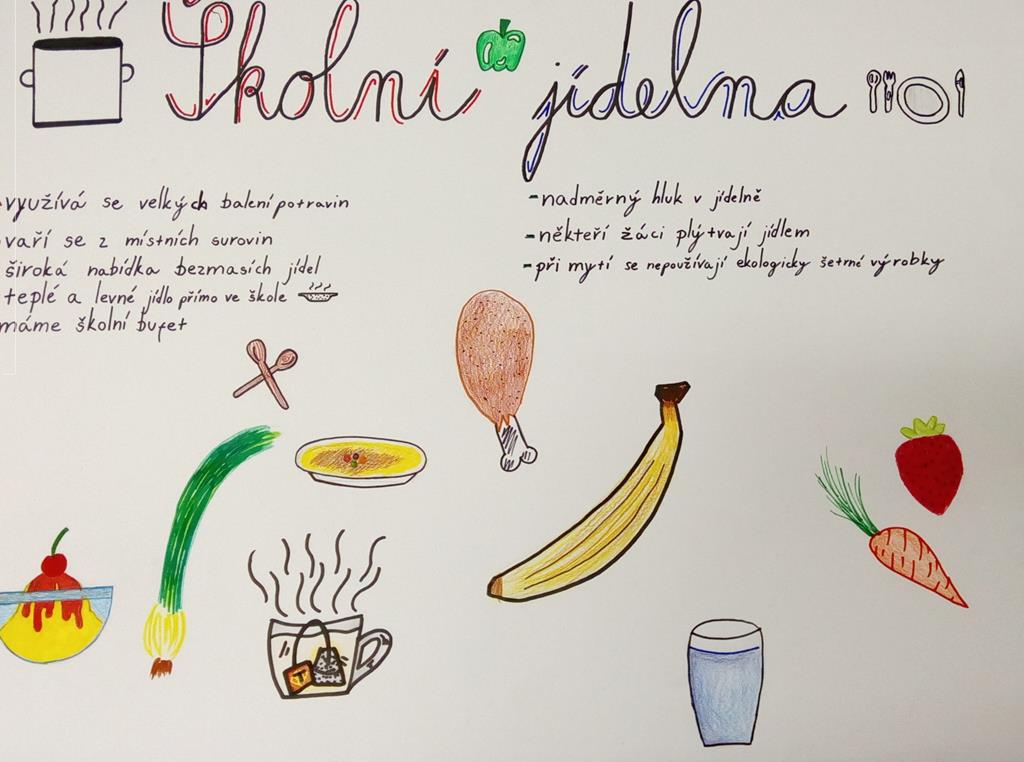 Školní jídelna
využívá se velkých balení potravin
vaří se z místních surovin
široká nabídka bezmasích jídel
teplé a levné jídlo přímo ve škole
máme školní bufet
-nadměrný hluk v jídelně
-někteří žáci plýtvají jídlem
-při mytí se nepoužívají ekologicky šetrné výrobky
T